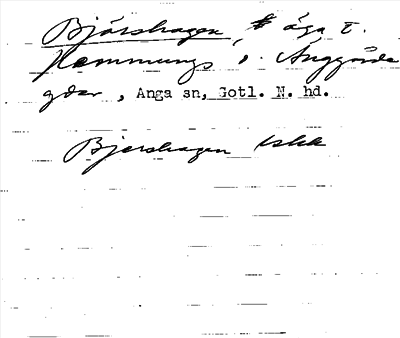 Bjärshagen, äga t.
Hemmungs o. Änggårde
gdar, Anga sn, Gotl. N. hd.
Bjershagen